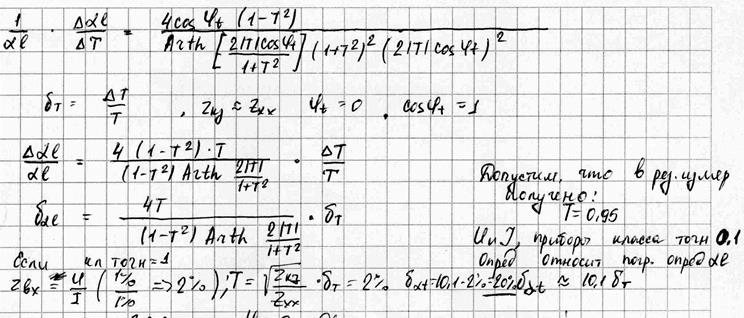 1/αℓ · Δαℓ/ΔT = 4cosφt (1-T²) / Arth [2|T|cosφt / 1+T²] (1+T²)² (2|T|cosφt)²
δT = ΔT/T , zкз ≈ zxx φt = 0 , cosφt = 1
Δαℓ/αℓ = 4(1-T²)·T / (1-T²) Arth 2|T|/1+T² · ΔT/T
δαℓ = 4T / (1-T²) Arth 2|T|/1+T² · δT
Допустим, что в рез. измер
получено:
T = 0,95
U и I, приборы класса точн 0.1
Опред относит погр. опред αℓ
Если кл точн = 1
zвх = U/I (1%/1% => 2%); T = √zкз/zxx · δT = 2% δαt = 10,1·2% = 20% δαt ≈ 10,1 δT